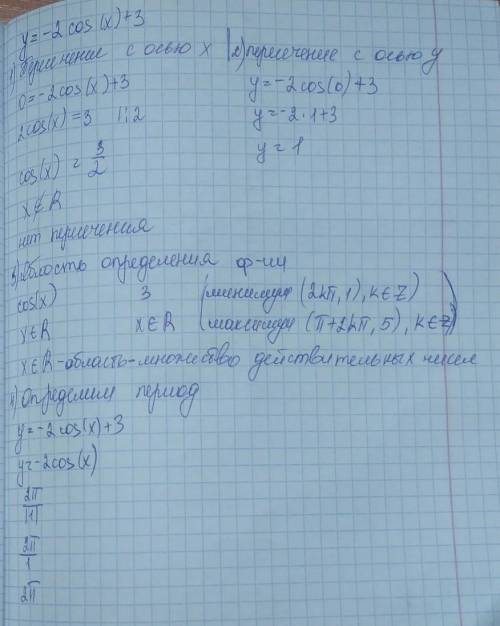 y=-2cos(x)+3
1) Пересечение с осью x
0=-2cos(x)+3
2cos(x)=3 |:2
cos(x) = 3/2
x∉R
нет пересечения
2) пересечение с осью y
y=-2cos(0)+3
y=-2·1+3
y=1
3) Область определения ф-ии
cos(x) 3 (минимум (2kπ,1), k∈Z)
x∈R x∈R (максимум (π+2kπ,5), k∈Z)
x∈R-область-множество действительных чисел
4) Определим период
y=-2cos(x)+3
y=-2cos(x)
2π/|1|
2π/1
2π